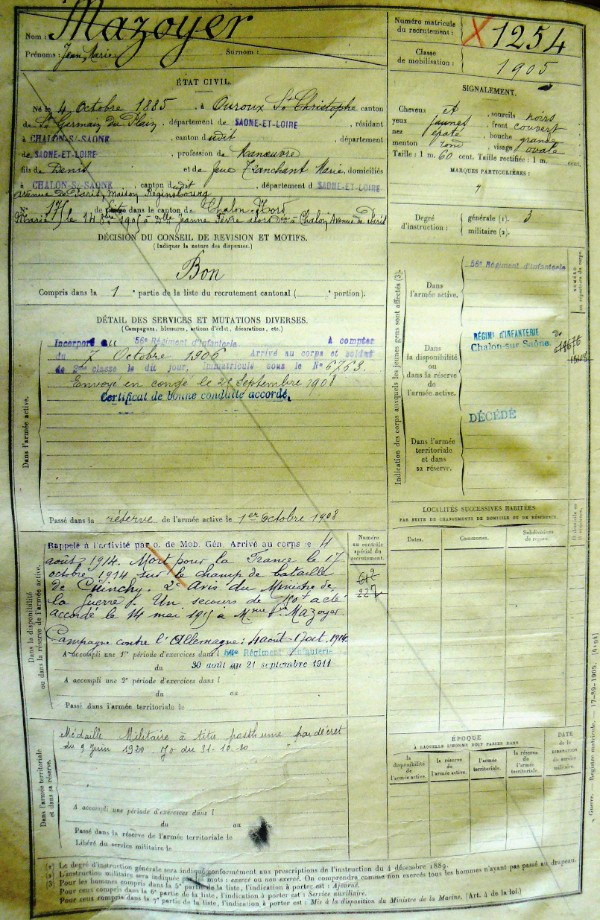 Nom : Mazoyer
Prénoms : Jean Marie Surnom :
Numéro matricule du recrutement : 1254
Classe de mobilisation : 1905
ÉTAT CIVIL.
Né le 4 Octobre 1885, à Ouroux St Christophe canton
de St Germain du Plain, département de SAONE-ET-LOIRE, résidant
à CHALON S/SAÔNE, canton dudit, département
de SAONE-ET-LOIRE, profession de Manœuvre
fils de Denis et de feue Tranchant Marie, domiciliés
à CHALON S/SAÔNE, canton dudit, département d SAONE-ET-LOIRE
N° 175 de la liste dans le canton de Chalon Nord
DÉCISION DU CONSEIL DE REVISION ET MOTIFS.
(Indiquer la nature des dispenses.)
Bon
Compris dans la 1e partie de la liste du recrutement cantonal ( portion).
SIGNALEMENT.
Cheveux et sourcils noirs
yeux jaunes, front couvert
nez épaté, bouche grande
menton rond, visage ovale
Taille : 1 m. 60 cent. Taille rectifiée : 1 m. cent.
MARQUES PARTICULIÈRES :
Degré d'instruction : générale (1). 3
militaire (2).
DÉTAIL DES SERVICES ET MUTATIONS DIVERSES.
(Campagnes, blessures, actions d'éclat, décorations, etc.)
Dans l'armée active.
Incorporé au 56e Régiment d'Infanterie A compter
du 7 Octobre 1906 Arrivé au corps et soldat
de 2me classe le dit jour, immatriculé sous le N° 6763
Envoyé en congé le 25 Septembre 1908
Certificat de bonne conduite accordé.
Passé dans la réserve de l'armée active le 1er octobre 1908
Indication des corps auxquels les jeunes gens sont affectés (3).
Dans l'armée active.
56e Régiment d'Infanterie
Dans la disponibilité ou dans la réserve de l'armée active.
RÉGIMT D'INFANTERIE
Chalon-sur-Saône.
DÉCÉDÉ
Dans l'armée territoriale et dans sa réserve.
LOCALITÉS SUCCESSIVES HABITÉES
PAR SUITE DE CHANGEMENTS DE DOMICILE OU DE RÉSIDENCE.
Dates. Communes. Subdivisions de région.
Dans la disponibilité ou dans la réserve de l'armée active.
Rappelé à l'activité par o. de Mob. Gén. Arrivé au corps le 4
août 1914. Mort pour la France le 17
octobre 1914 sur le champ de bataille
de Cuinchy. Avis du Ministre de
la Guerre. Un secours de 150f a été
accordé le 14 mai 1915 à Mme Vve Mazoyer
Campagne contre l'Allemagne : 4 août - 17 oct. 1914
A accompli une 1re période d'exercices dans l 56e Régiment d'Infanterie
du 30 août au 21 septembre 1911
A accompli une 2e période d'exercices dans l
du au
Passé dans l'armée territoriale le
Numéro au contrôle spécial du recrutement.
Dans l'armée territoriale et dans sa réserve.
Médaille Militaire à titre posthume par décret
du 9 juin 1920 JO du 31-10-20
A accompli une période d'exercices dans l
du au
Passé dans la réserve de l'armée territoriale le
Libéré du service militaire le
ÉPOQUE
À LAQUELLE L'HOMME DOIT PASSER DANS
la disponibilité de l'armée active. la réserve de l'armée active. l'armée territoriale. la réserve de l'armée territoriale.
DATE de la LIBÉRATION du service militaire.
(1) Le degré d'instruction générale sera indiqué conformément aux prescriptions de l'instruction du 4 décembre 1889.
(2) L'instruction militaire sera indiquée par les mots : exercé ou non exercé. On comprendra comme non exercés tous les hommes n'ayant pas passé au drapeau.
(3) Pour les hommes compris dans la 5e partie de la liste, l'indication à porter est : Ajourné.
Pour ceux compris dans la 6e partie de la liste, l'indication à porter est : Service auxiliaire.
Pour ceux compris dans la 7e partie de la liste, l'indication à porter est : Mis à la disposition du Ministre de la Marine. (Art. 4 de la loi.)